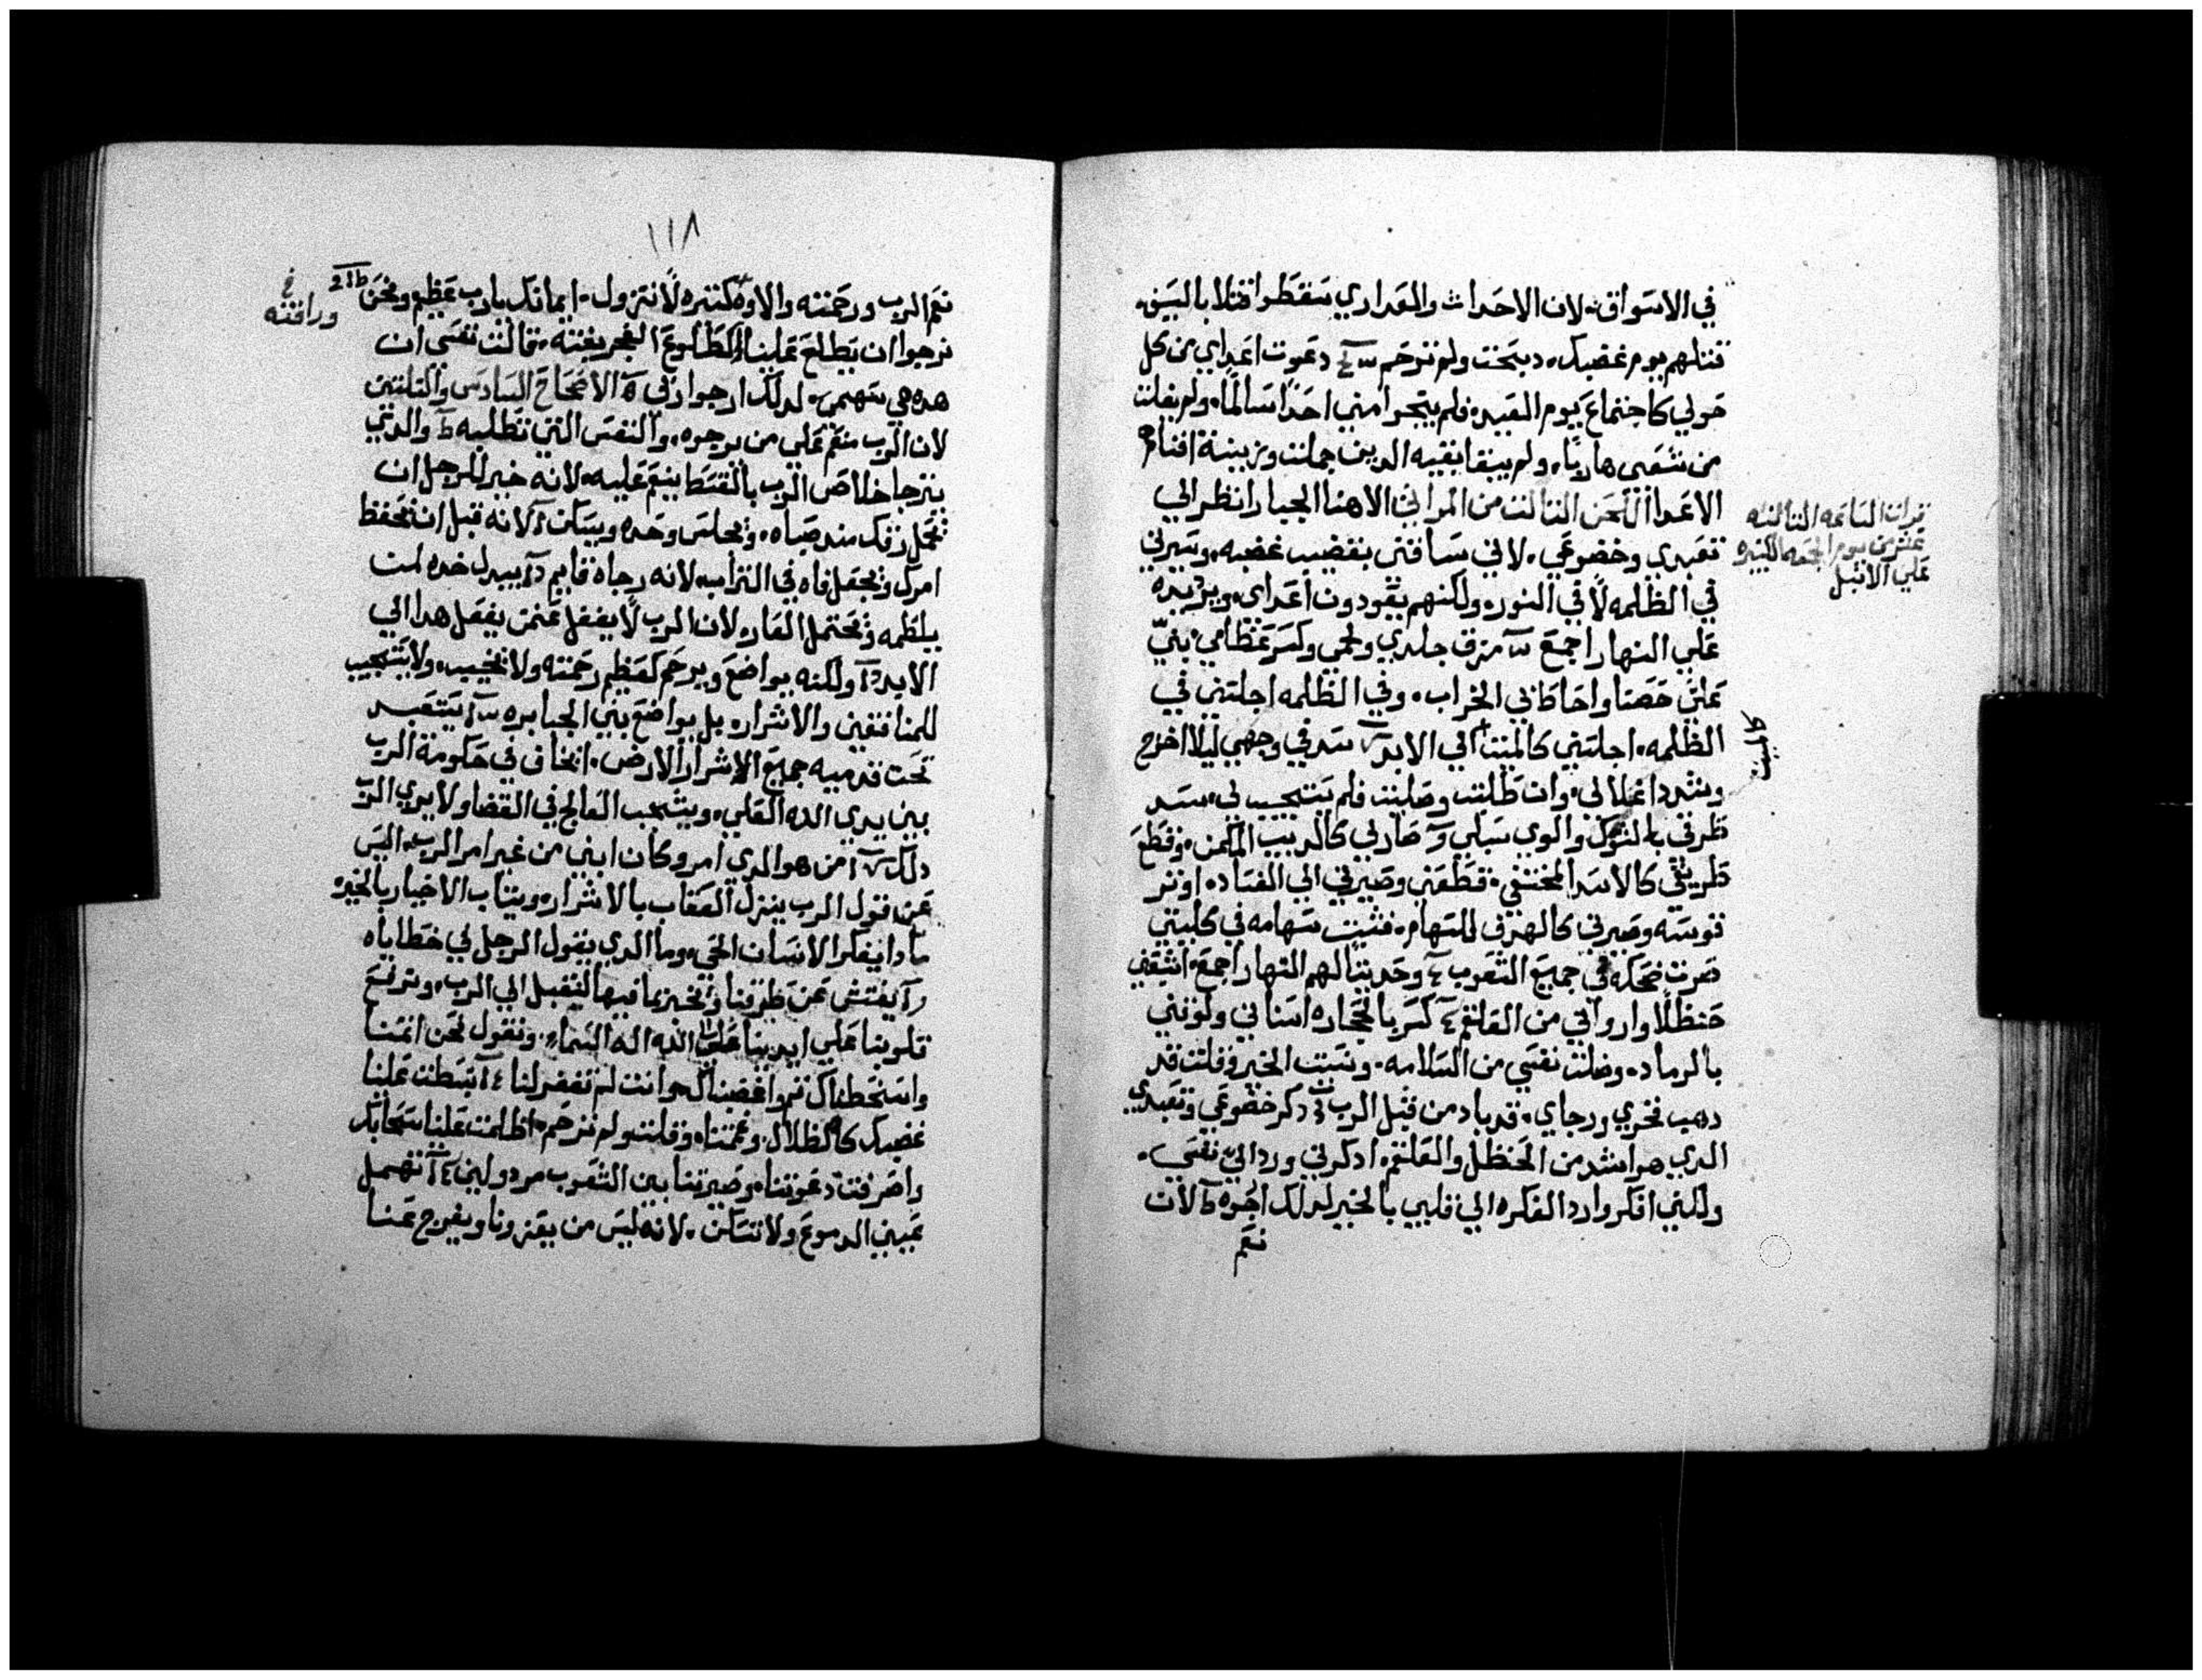 في الاسواق. لان الاحداث والعداري سقطوا قتلا بالسيف.
قتلتهم يوم غضبك. دبحت ولم ترحم دعوت اعداي من كل
حولي كاجتماع يوم العيد. فلم ينجوا مني احدًا سالمًا. ولم يفلت
من شعبي هاربًا. ولم يبقا بقيه الدين حملت وربيت افناهم
الاعدا اللحن التالت من المراتي الاهنا الجبار انظر الي
تعبدي وخضوعي. لاني ساقتني بقضيب غضبه. وسيرني
في الظلمه لا في النور. ولكنهم يقودون اعداي. ويريده
علي النهار اجمع مزق جلدي ولحمي وكسر عظامي. بني
علي حصنا واحاط بي الخراب. وفي الظلمه اجلسني في
الظلمه. اجلسني كالميت الي الابد سد في وجهي ليلا اخرج
وشدد اغلالي. وان طلبت وصليت فلم يستجيب لي. سد
طرقي بالشوك والوي سبلي صار لي كالديب المكمن. وقطع
طريقي كالاسد المختفي. قطعني وصيرني الي الفساد. اوتر
قوسه وصيرني كالهدف للسهام. فثبت سهامه في كليتي
صرت ضحكه في جميع الشعوب وحديثا لهم النهار اجمع. اشبعني
حنظلًا وارواني من العلقم كسر بالحجاره اسناني ولوتني
بالرماد. وضلت نفسي من السلامه. ونسيت الخير وقلت قد
دهب فخري ورجاي. قد باد من قبل الرب دكر خضوعي وتعبدي
الدي هو اشد من الحنظل والعلقم. ادكرني ورد الي نفسي.
ولكني افكر وارد الفكره الي قلبي بالخير لدلك اجوه لان
نعم
تقرات الساعه التالته
عشر من يوم الجمعه الكبيره
علي الانبل
كالميت
١١٨
نعم الرب ورحمته والاوه كتيره لا تزول. ايمانك يارب عظيم ونحن
نرجوا ان يطلع علينا كطلوع الفجر بغته. قالت نفسي ان
هده هي سهمي. لدلك ارجوا ربي الاصحاح السادس والتلتين
لان الرب منعم علي من يرجوه. والنفس التي تطلبه والدي
يترجا خلاص الرب بالقسط ينعم عليه. لانه خير للرجل ان
يحمل رقك مند صباه. ويجلس وحده ويسكن لانه قبل ان يحفظ
امرك ويجعل فاه في التراب. لانه رجاه قايم يبدل خده لمن
يلطمه ويحتمل العار. لان الرب لا يغفل عمن يفعل هدا الي
الابد ولكنه يواضع ويرحم كعظم رحمته ولا يخيب. ولا يستجيب
للمنافقين والاشرار. بل يواضع بني الجبابره يتعبد
تحت قدميه جميع الاشرار الارض. ايخاف في حكومة الرب
بين يدي الله العلي. ويشجب الفالج في القضا ولا يري الرب
دلك من هو الدي امر وكان ابني من غير امر الرب. اليس
عن قول الرب ينزل العقاب بالاشرار. ويتاب الاخيار بالخير
مادا يفكر الانسان الحي. وما الدي يقول الرجل في خطاياه
يفتش عن طرقنا ونخبر بما فيها لنقبل الي الرب. ونرفع
قلوبنا علي ايدينا علي الله اله السماء. ونقول نحن اتمنا
واسخطناك نحن واغضبناك. وانت لم تغفر لنا تبسطت علينا
غضبك كالظلال. وغمتنا. وقتلت ولم ترحم. اظلمت علينا سحابك
واصرفت دعوتنا. وصيرتنا بين الشعوب مردولين تهمل
عيني الدموع ولا تسكن. لانه ليس من يعزونا ويفرج عنا
ورافته